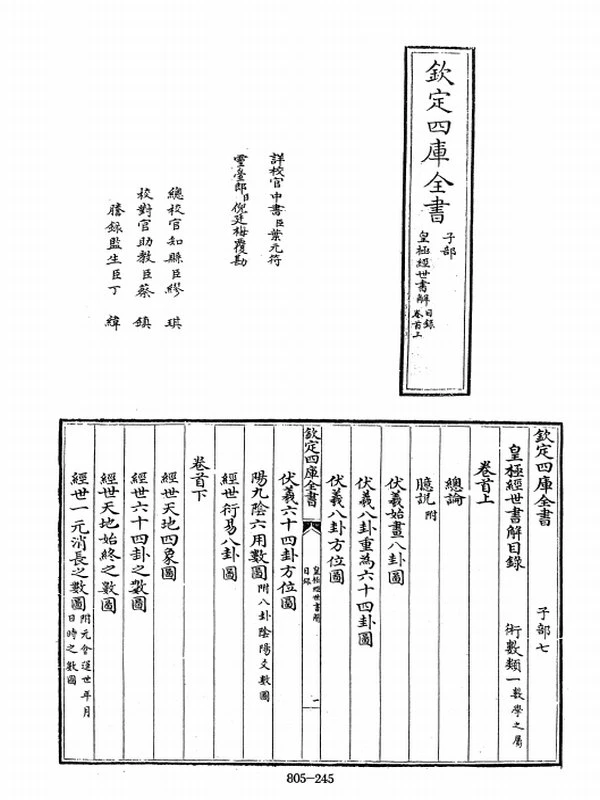 欽定四庫全書
子部
皇極經世書解目錄
卷首上
詳校官中書臣葉元符
靈臺郎臣倪廷梅覆勘
總校官知縣臣繆琪
校對官助教臣蔡鎮
謄錄監生臣丁緯
欽定四庫全書 子部七
皇極經世書解目錄 術數類一數學之屬
卷首上
總論
臆說附
伏羲始畫八卦圖
伏羲八卦重為六十四卦圖
伏羲八卦方位圖
欽定四庫全書
皇極經世書解
目錄
一
伏羲六十四卦方位圖
陽九陰六用數圖附八卦陰陽爻數圖
經世衍易八卦圖
卷首下
經世天地四象圖
經世六十四卦之數圖
經世天地始終之數圖
經世一元消長之數圖附元會運世年月
日時之數圖
805-245